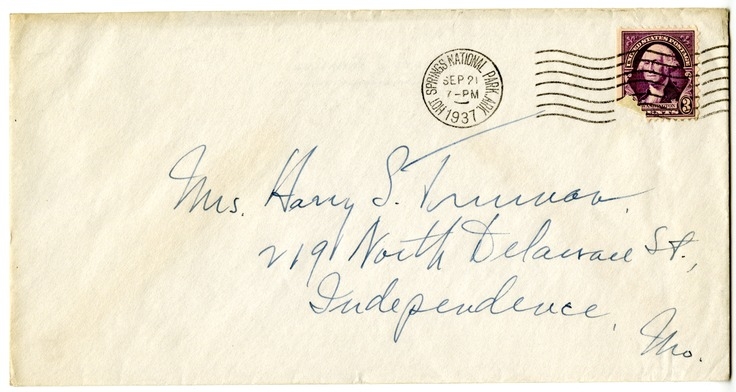 HOT SPRINGS NATIONAL PARK, ARK.
SEP 21
7-PM
1937
UNITED STATES POSTAGE
WASHINGTON
3
CENTS
Mrs. Harry S. Truman,
219 North Delaware St.,
Independence,
Mo.